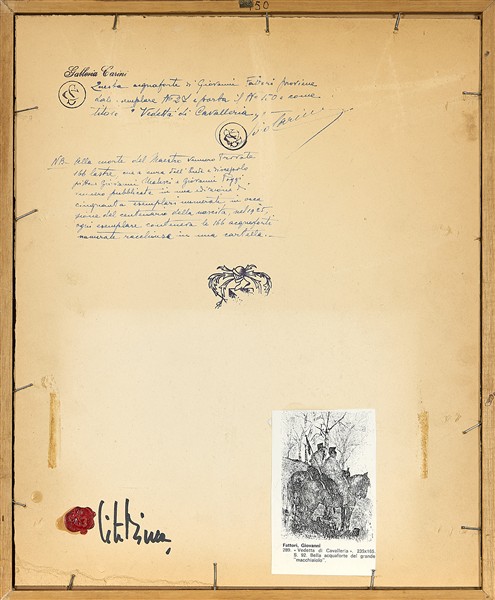 50
Galleria Carini
Questa acquaforte di Giovanni Fattori proviene
dall'esemplare N° e porta il N° 150 e come
titolo "Vedetta di Cavalleria"
NB- Alla morte del Maestro vennero trovate
166 lastre che a cura dell'erede e discepolo
pittore Giovanni Malesci e Giovanni Poggi
vennero pubblicate in una edizione di
cinquanta esemplari numerati, in occa
sione del centenario della nascita, nel 1925.
ogni esemplare conteneva le 166 acqueforti
numerate racchiuse in una cartella.
Fattori, Giovanni
280. «Vedetta di Cavalleria».
S. 92. Bella acquaforte del grande
"macchiaiolo".